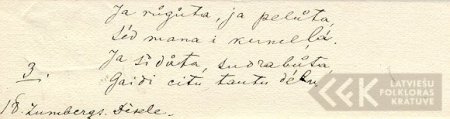 Ja rûgûta, ja pelûta,
Sēd mana i kumeļā.
3. Ja sīdûtā, sudrabûtā,
Gaidi citu tautu dēlu,
18. Zumbergs. Dsele.
LATVIEŠU
FOLKLORAS
KRĀTUVE